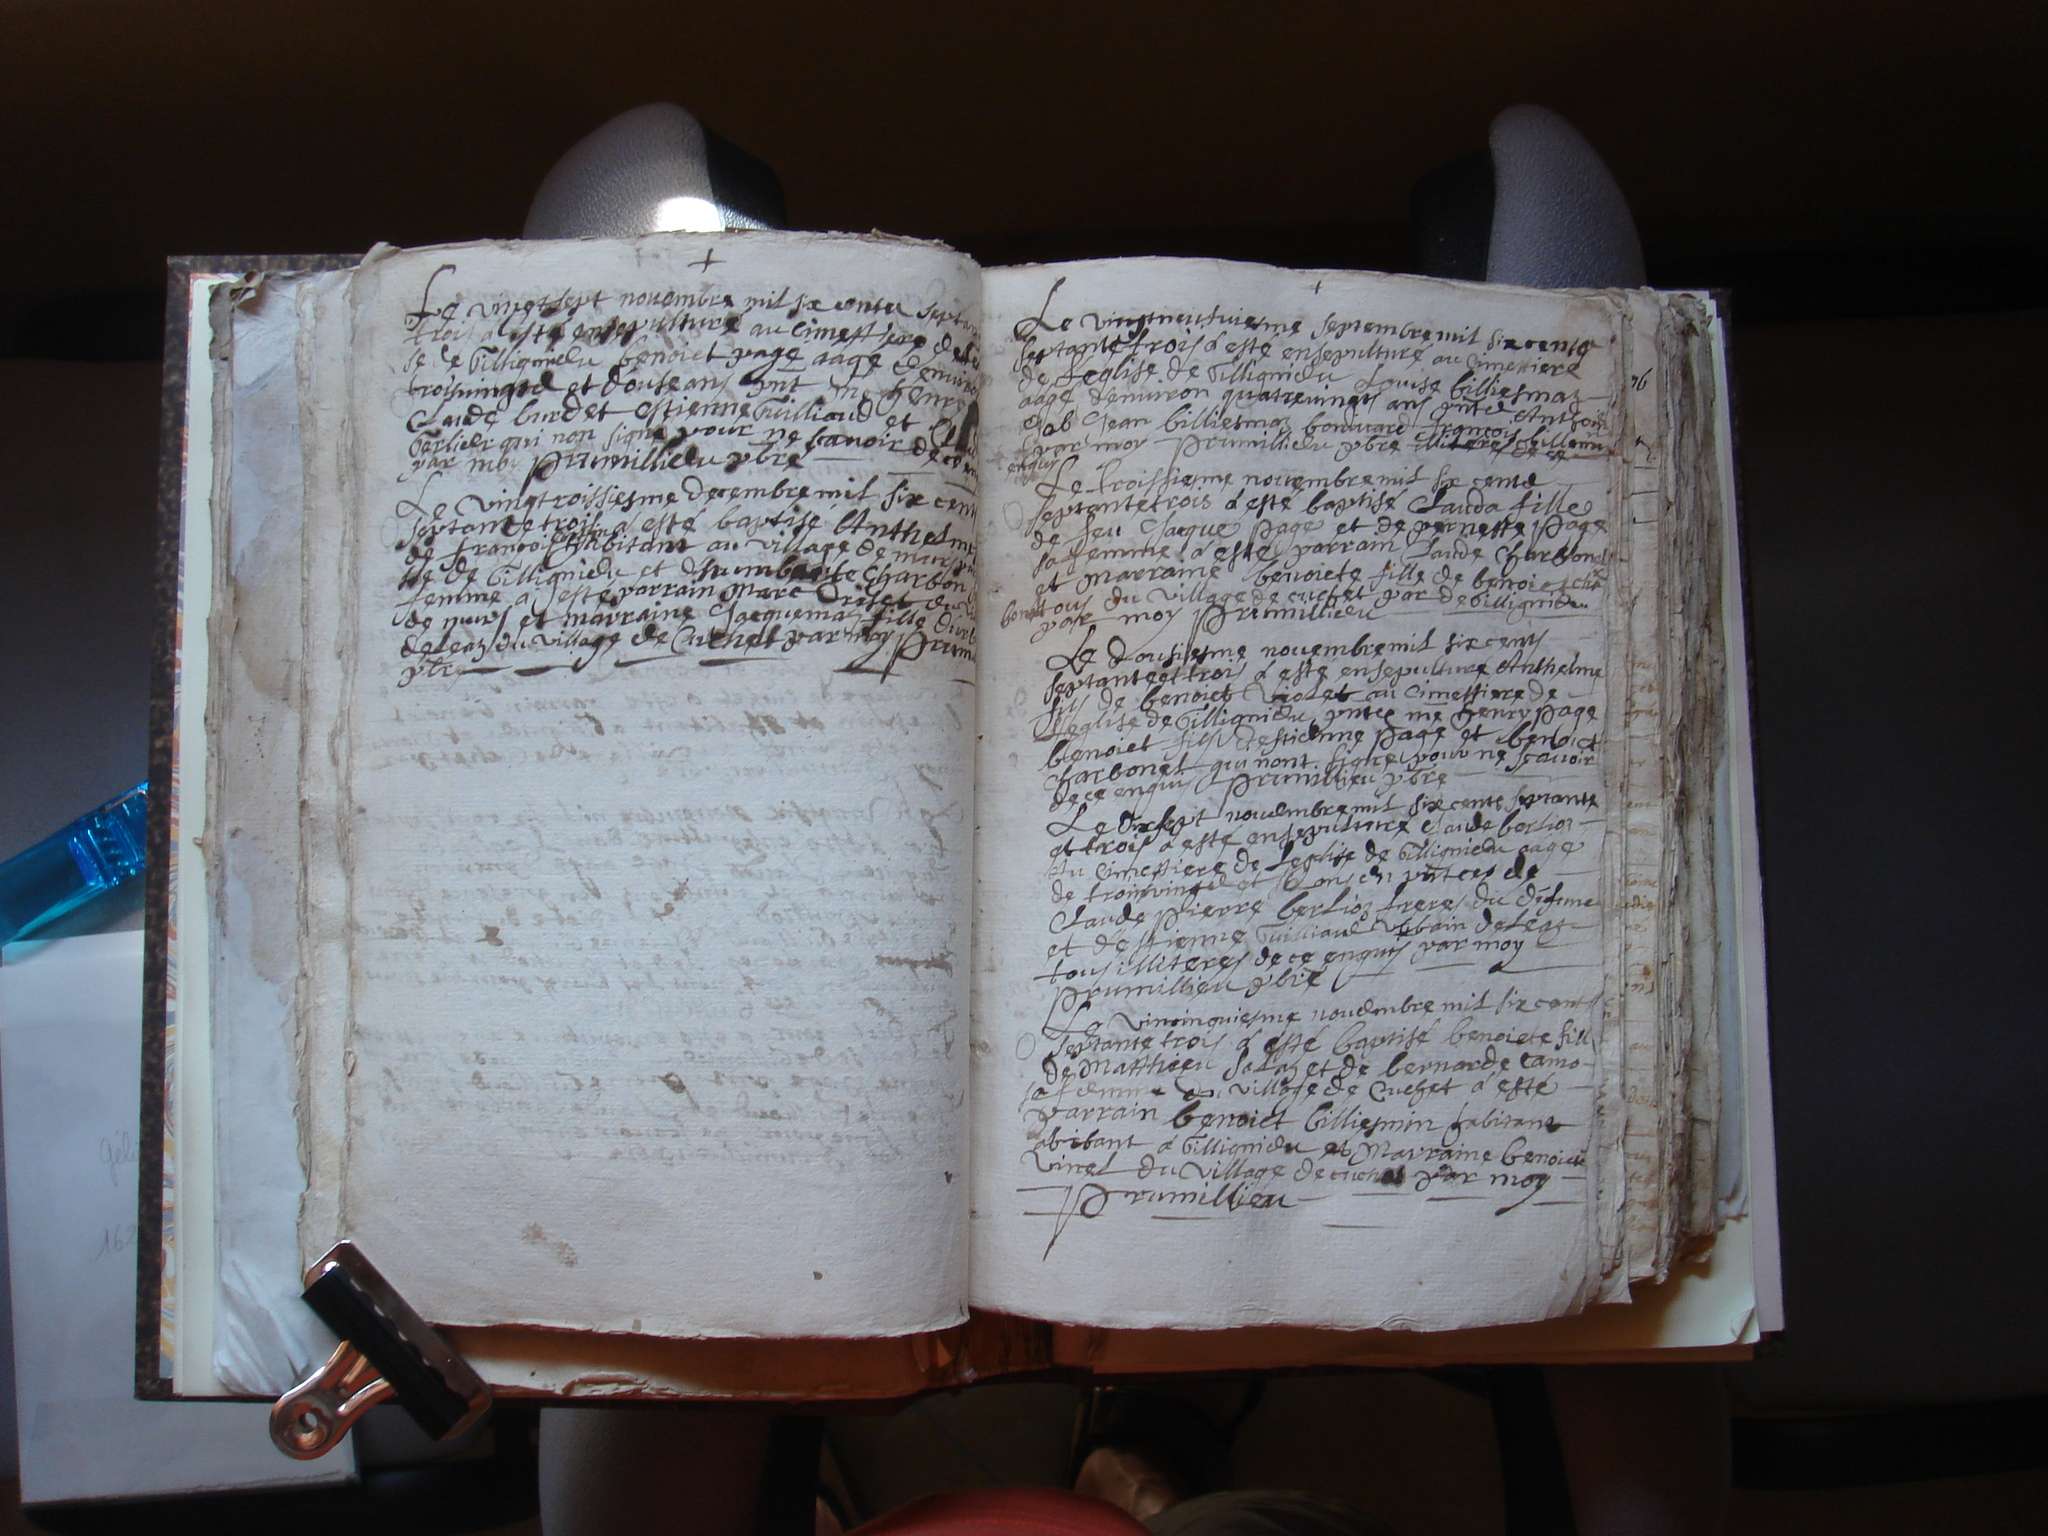 Le vingtsept novembre mil six cents septan
trois a esté ensepulturé au Cimestiere de
se de Gillignieu benoict page aagé denviron
troisvingtz et douse ans pnt me henri
Claude burdet estienne Guilliaud et
berlier qui non signé pour ne scavoir de ce en
par moy Prumillieu pbre
Le vingtroissiesme decembre mil six cent
septante trois a esté baptisé Anthelme
de francois habitant au village de murs
se de Gillignieu et dhumberte Charbon
femme a esté parrain Marc Violet du vi
de murs et marraine Jacquema fille durb
deleaz du village de Cuchet par moy Prumi
pbre
Le vingtneufuiesme septembre mil six cents
septante trois a esté ensepulturé au Cimestiere
de Leglise de Gilligneu Louise billiesmaz
aagé denviron quatrevingts ans pntes Anthoine
Jean billiesmaz bonivard francois
par moy Prumillieu pbre illiteres de ce
enquis
Le Troissiesme novembre mil six cents
septante trois a esté baptisé Clauda fille
de feu Jacque page et de pernette page
sa femme a esté parrain Claude Charbonet
et Marraine benoiete fille de benoict char
bonet tous du village de cuchet par de Gillignieu
par moy Prumillieu
Le Dousiesme novembre mil six cents
septante et trois a esté ensepulturé Anthelme
fils de benoict Violet au Cimestiere de
Leglise de Gillignieu pntes me henry page
benoict fils destienne page et benoict
Charbonet qui nont signé pour ne scavoir
de ce enquis Prumillieu pbre
Le Dixsept novembre mil six cents septante
et trois a esté ensepulturé Claude berlioz
Au Cimestiere de Leglise de Gillignieu aagé
de troisvingtz et ans en pntces de
Claude Pierre berlioz freres du défunct
et destienne Guilliaud Urbain deleaz
tous illiteres de ce enquis par moy
Prumillieu pbre
Le Vincinquiesme novembre mil six cents
septante trois a esté baptisé benoiete fille
de Matthieu et de bernarde Camo
sa femme du village de Cuchet a esté
parrain benoict billiesmin habitant
abitant a Gillignieu et Marraine benoiete
Vinet du village de cuchet par moy
Prumillieu